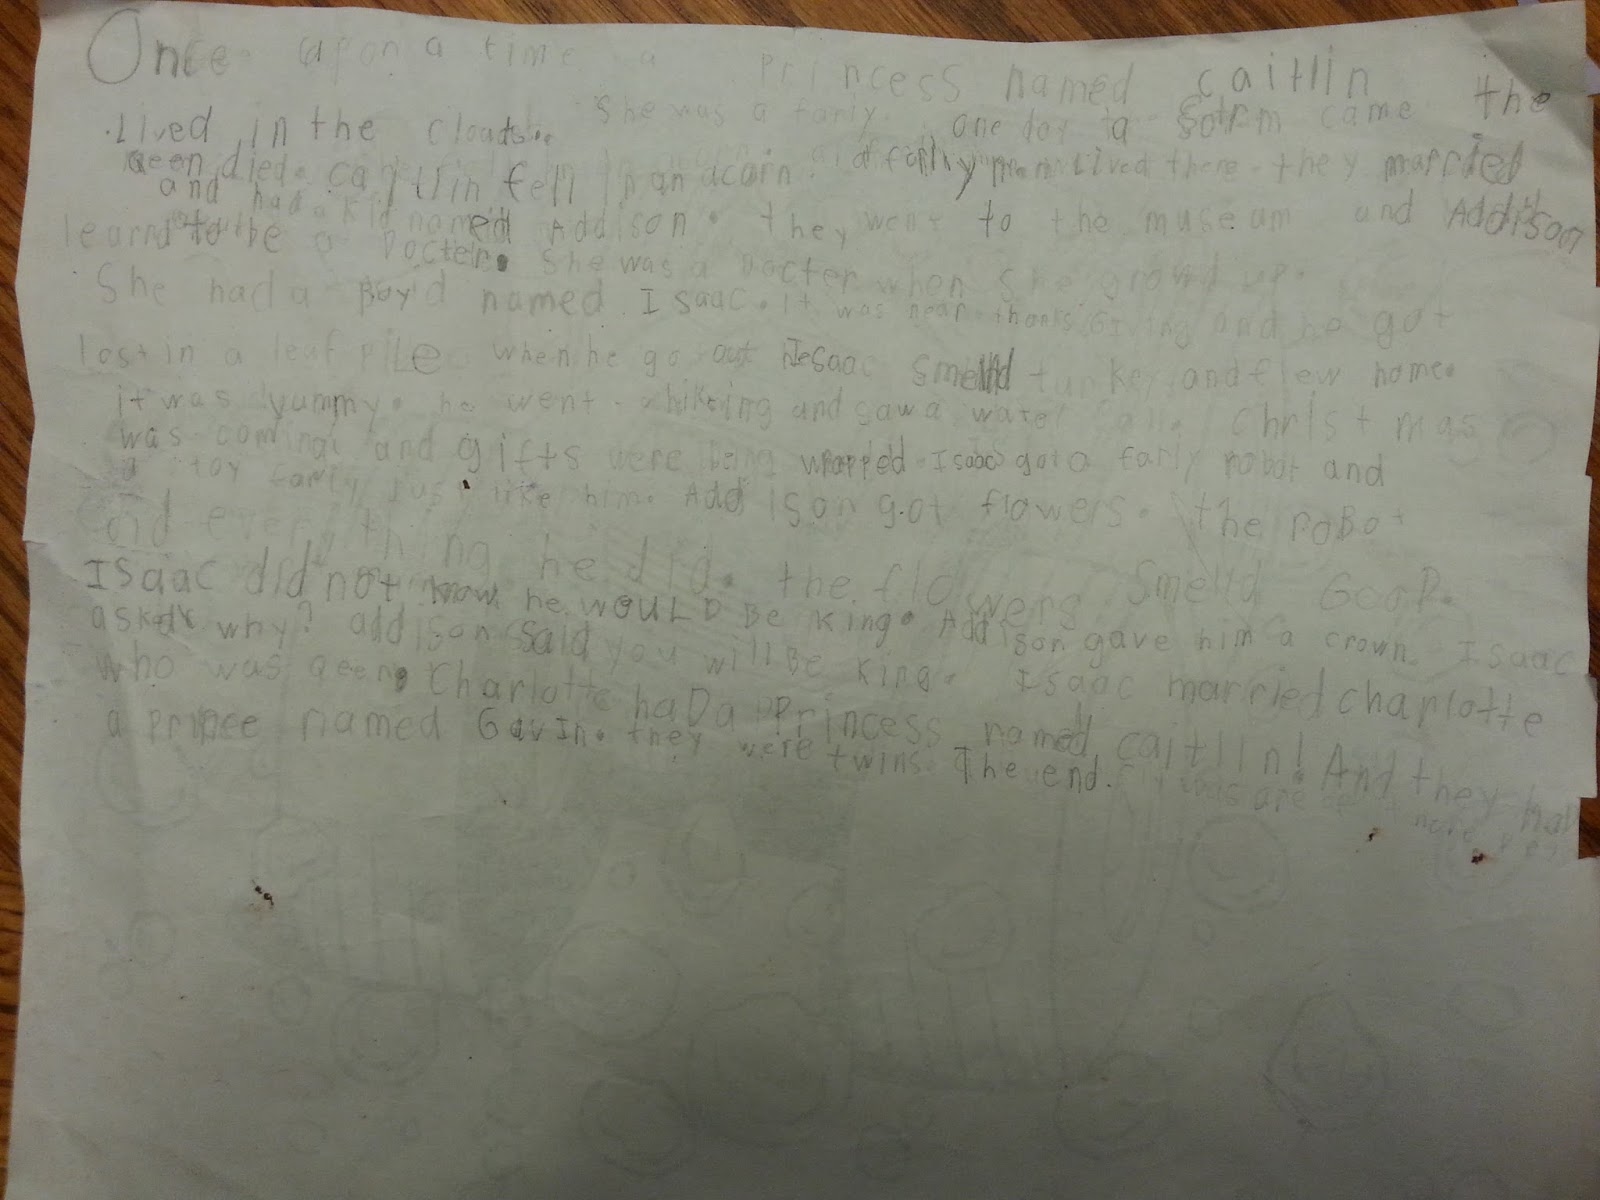 Once upon a time a princess named caitlin
Lived in the clouds. She was a fariy. one day a Sotrm came the
qeen died. caitlin fell in an acorn. a fariy man Lived there. they married
and had a kid named Addison. they went to the museam and Addison
learnd to be a Docter. She was a Docter when she growd up.
She had a Boy named Isaac. It was near thanksGiving and he got
lost in a leaf pile when he go out Isaac Smelld turkey and flew home.
it was yummy. he went hikeing and saw a water fall. Christmas
was coming and gifts were being wrapped. Isaac got a fariy robot and
a toy fariy just like him. Addison got flowers. the roBot
did every thing he did. the flowers Smelld GooD.
Isaac did not know he wOULD Be King. Addison gave him a crown. Isaac
asked why? addison said you will Be King. Isaac married charlotte
who was qeen. Charlotte haD a Princess named caitlin! And they had
a prince named Gavin. they were twins. The end.